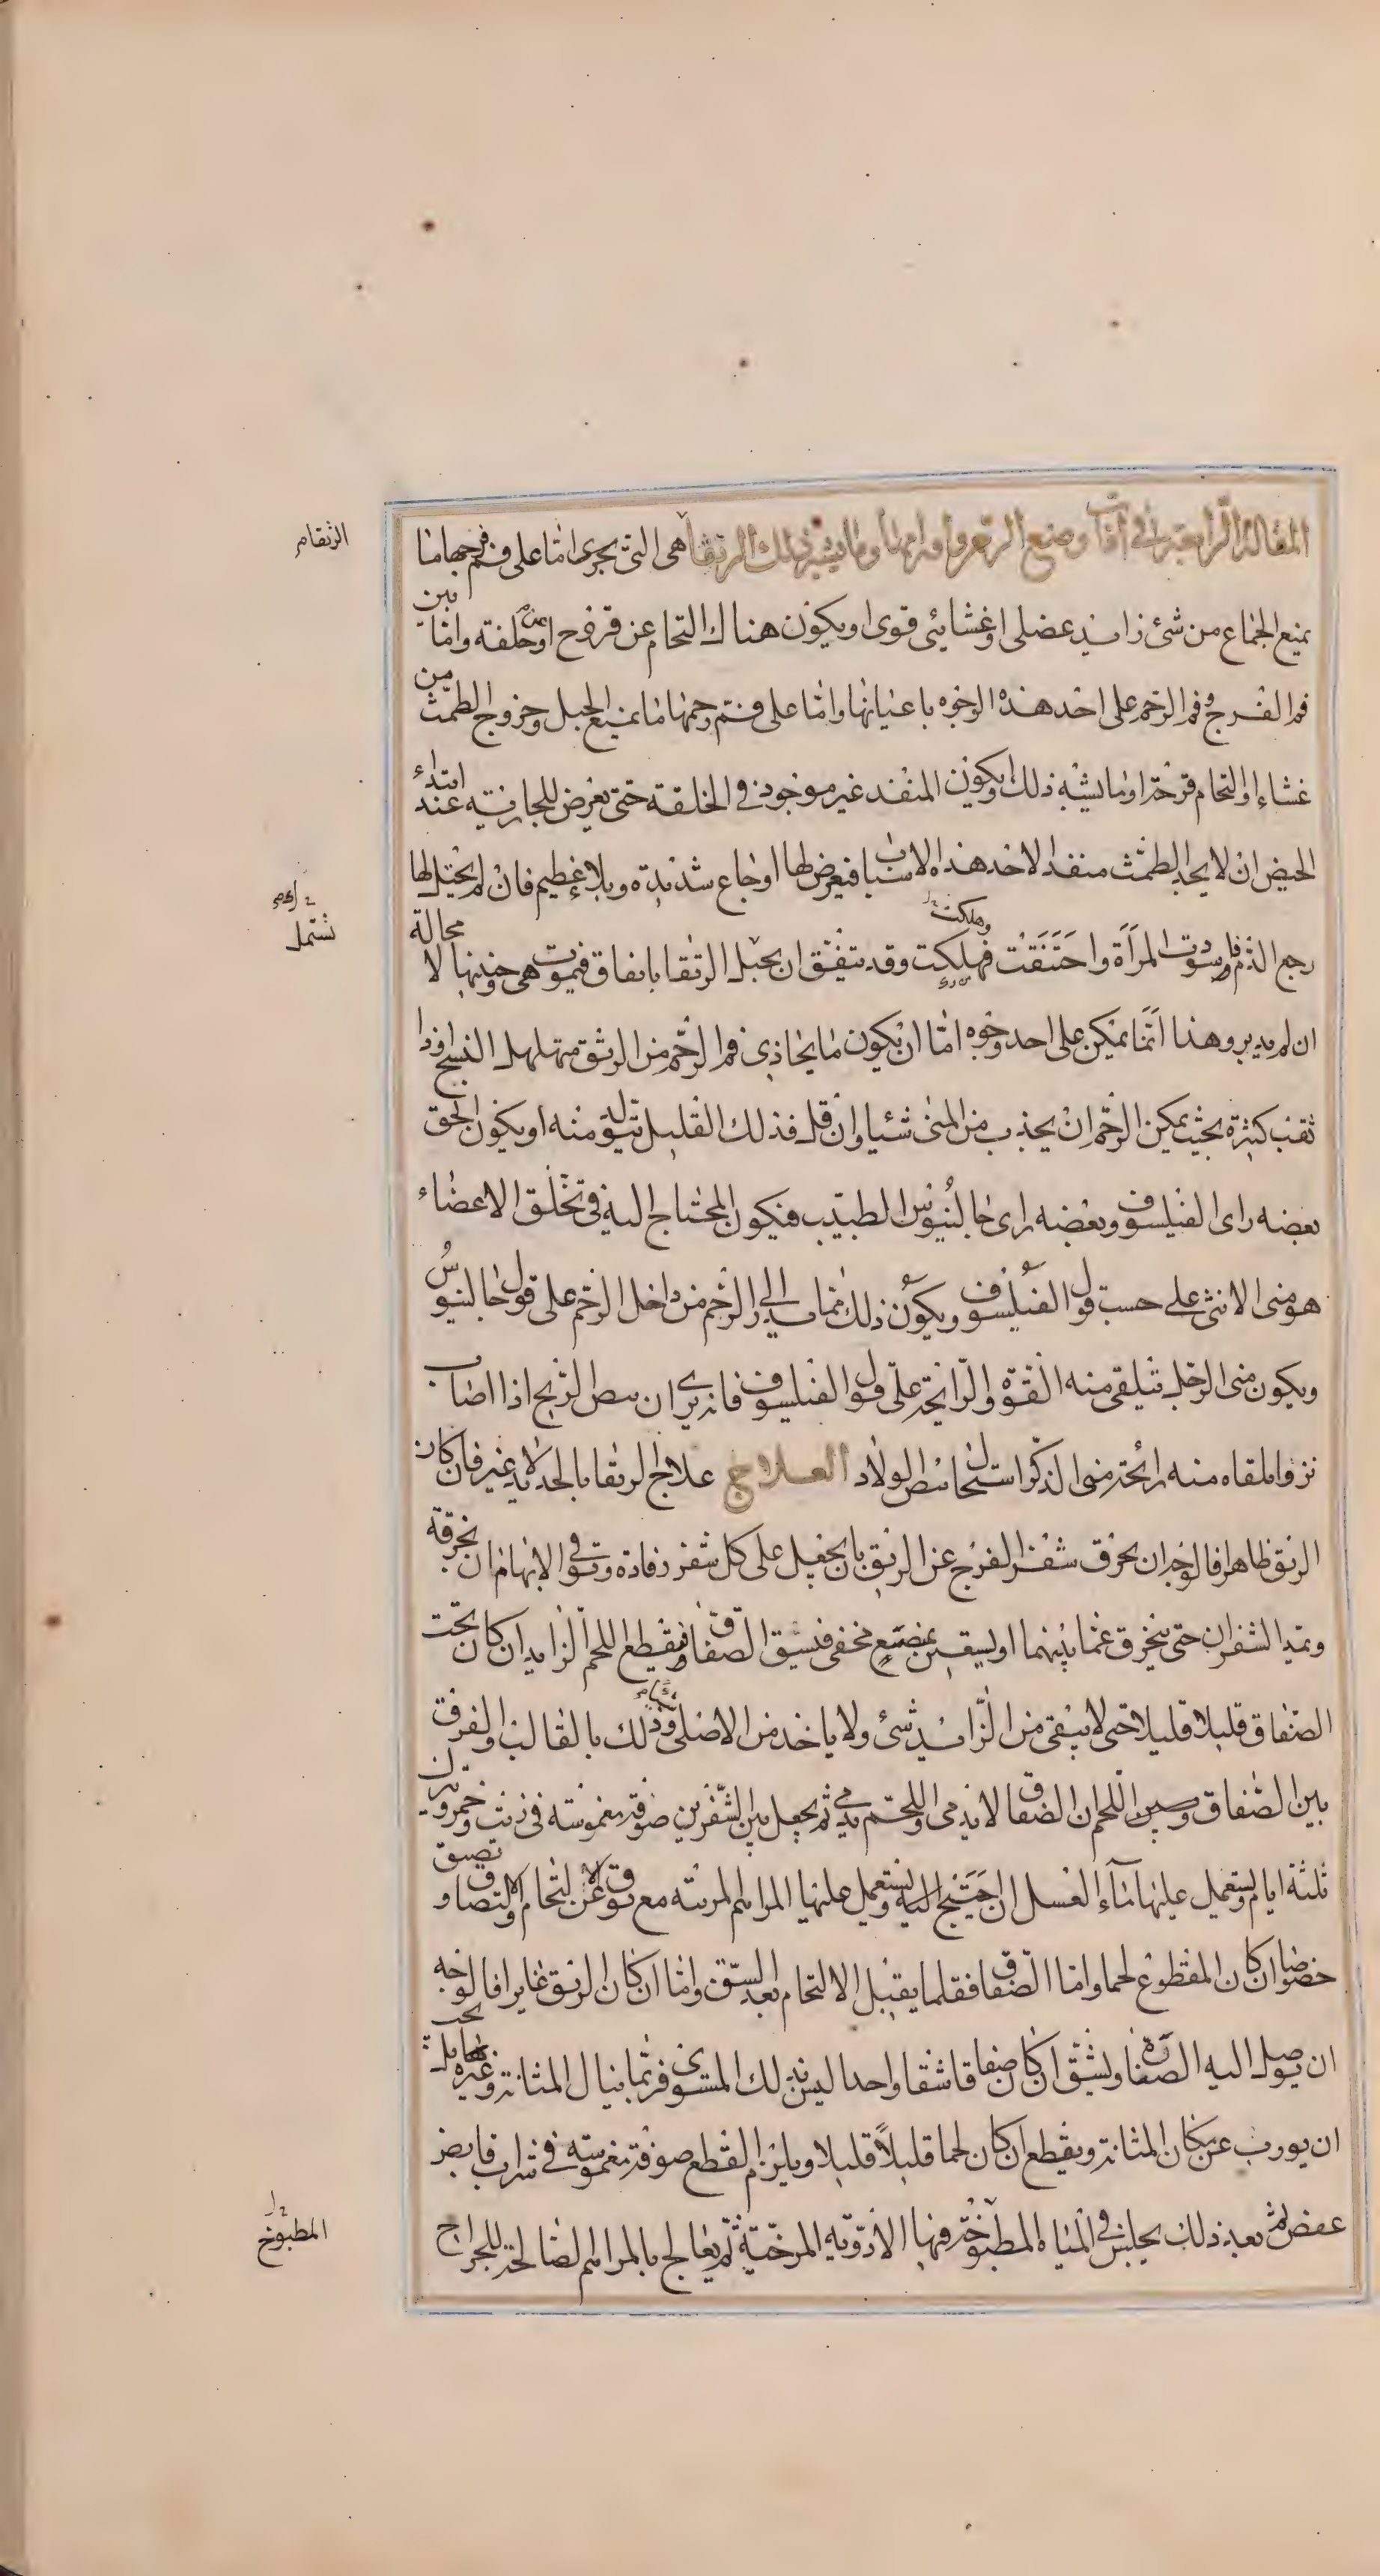 المقالة الرابعة في آفات وضع الرحم واورامها وما يشبه ذلك الرتقا هي التي يجرى اما على فم فرجها ما
يمنع الجماع من شئ زايد عضلى او غشائى قوى او يكون هناك التحام عن قروح او عن خلقة واما بين
فم الفرج وفم الرحم على احد هذه الوجوه باعيانها واما على فم رحمها ما يمنع الحبل وخروج الطمث من
غشاء او التحام قرحة او ما يشبه ذلك او يكون المنفد غير موجود فى الخلقة حتى يعرض للجارية عند ابتداء
الحيض ان لا يجد الطمث منفدا لاحد هذه الاسباب فيعرض لها اوجاع شديدة وبلاء عظيم فان لم يحتل لها
رجع الدم فاسودت المراة واختنقت فهلكت وقد يتفق ان يحبل الرتقا باتفاق فيموت هى وجنينها لا محالة
ان لم يدبر وهذا انما يمكن على احد وجوه اما ان يكون ما يحاذى فم الرحم من الرتق متهلهل النسج او ذا
ثقب كثيرة بحيث يمكن الرحم ان يجذب من المنى شئيا وان قل فذلك القليل يتولد منه او يكون الحق
بعضه راى الفيلسوف وبعضه راى جالينوس الطبيب فيكون المحتاج اليه فى تخلق الاعضاء
هو منى الانثى على حسب قول الفيلسوف ويكون ذلك مما الى الرحم من داخل الرحم على قول جالينوس
ويكون منى الرجل يتلقى منه القوة والرايحة على قول الفيلسوف فانه يرى ان بيض الريح اذا اصاب
نزوا يلقاه منه رائحة منى الذكر استحال بيض الولاد العلاج علاج الرتقا بالحديد لا غير فان كان
الرتق ظاهرا فالوجه ان يخرق شفر الفرج عن الرتق بان يجعل على كل شفر رفادة وتوقى الابهام ان بخرقة
وتمد الشفران حتى ينخرق عما بينهما او يستعين بمبضع مخفى فيشق الصفاق ويقطع اللحم الزايد ان كان تحت
الصفاق قليلا قليلا حتى لا يبقى من الزايد شئ ولا ياخذ من الاصلى وذلك بالقالب والفرق
بين الصفاق وبين اللحم ان الصفاق لا يدمى واللحم يدمى ثم يجعل بين الشفرين صوفة مغموسة فى زيت وخمر ويترك
ثلثة ايام ويستعمل عليها ماء العسل ان احتيج اليه ويستعمل عليها المراهم المرتبه مع توق عن الالتحام والالتصاق او تضيق
خصوصا ان كان المقطوع لحما واما الصفاق فقلما يقبل الالتحام بعد الشق واما ان كان الرتق غايرا فالوجه
ان يوصل اليه الصنارة ويشق ان كان صفاقا شقا واحدا ليس بذلك المستوى فربما ينال المثانة وغيره بل يجب
ان يورب عن مكان المثانة ويقطع ان كان لحما قليلاً قليلا ويلزم القطع صوفة مغموسة فى شراب قابض
عفص ثم بعد ذلك يجلس فى المياه المطبوخة فيها الادوية المرخية ثم يعالج بالمراهم الصالحة للجراح
الرتقام
تشتمل
وهلكت
المطبوخ